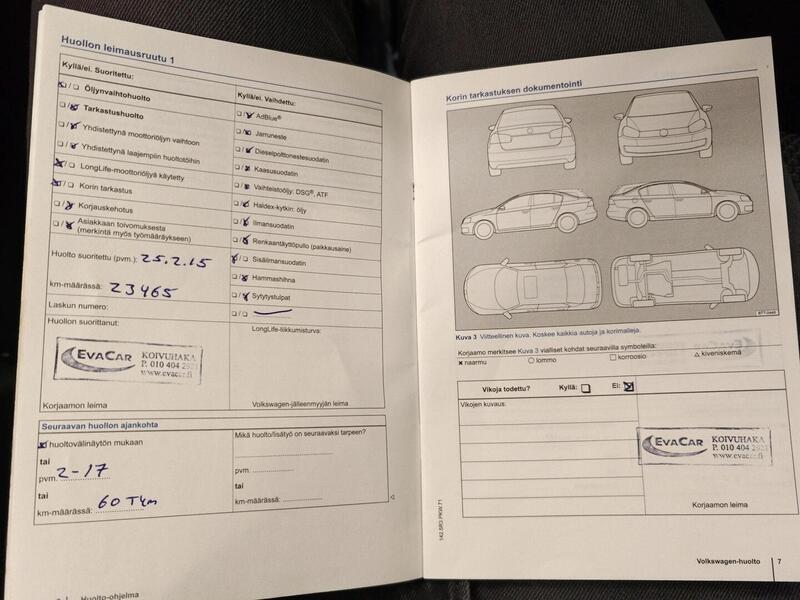 Huollon leimausruutu 1
Kyllä/ei. Suoritettu:
Öljynvaihtohuolto
Tarkastushuolto
Yhdistettynä moottoriöljyn vaihtoon
Yhdistettynä laajempiin huoltotöihin
LongLife-moottoriöljyä käytetty
Korin tarkastus
Korjauskehotus
Asiakkaan toivomuksesta
(merkintä myös työmääräykseen)
Kyllä/ei. Vaihdettu:
AdBlue®
Jarruneste
Dieselpolttonestesuodatin
Kaasusuodatin
Vaihteistoöljy: DSG®, ATF
Haldex-kytkin: öljy
Ilmansuodatin
Renkaantäyttöpullo (paikkausaine)
Sisäilmansuodatin
Hammashihna
Sytytystulpat
Huolto suoritettu (pvm.): 25.2.15
km-määrässä: 23465
Laskun numero:
Huollon suorittanut:
LongLife-liikkumisturva:
EVACAR KOIVUHAKA
P. 010 404 2921
www.evacar.fi
Korjaamon leima
Volkswagen-jälleenmyyjän leima
Seuraavan huollon ajankohta
huoltovälinäytön mukaan
tai
pvm. 2-17
tai
km-määrässä: 60 Tkm
Mikä huolto/lisätyö on seuraavaksi tarpeen?
pvm.
tai
km-määrässä:
Huolto-ohjelma
Korin tarkastuksen dokumentointi
Kuva 3 Viitteellinen kuva. Koskee kaikkia autoja ja korimalleja.
Korjaamo merkitsee Kuva 3 vialliset kohdat seuraavilla symboleilla:
naarmu lommo korroosio kiveniskemä
Vikoja todettu? Kyllä: Ei:
Vikojen kuvaus:
EVACAR KOIVUHAKA
P. 010 404 2921
www.evacar.fi
Korjaamon leima
142.5R3.PKW.71
Volkswagen-huolto 7